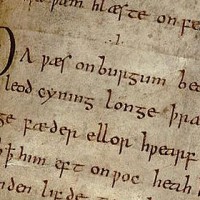 þæm hlæste on fe
.I.
ÐA ǷÆS on burgum beo
leod cyning longe þra
ge fæder ellor hƿearf
þꝥ him eft onƿoc heah
nden lifde